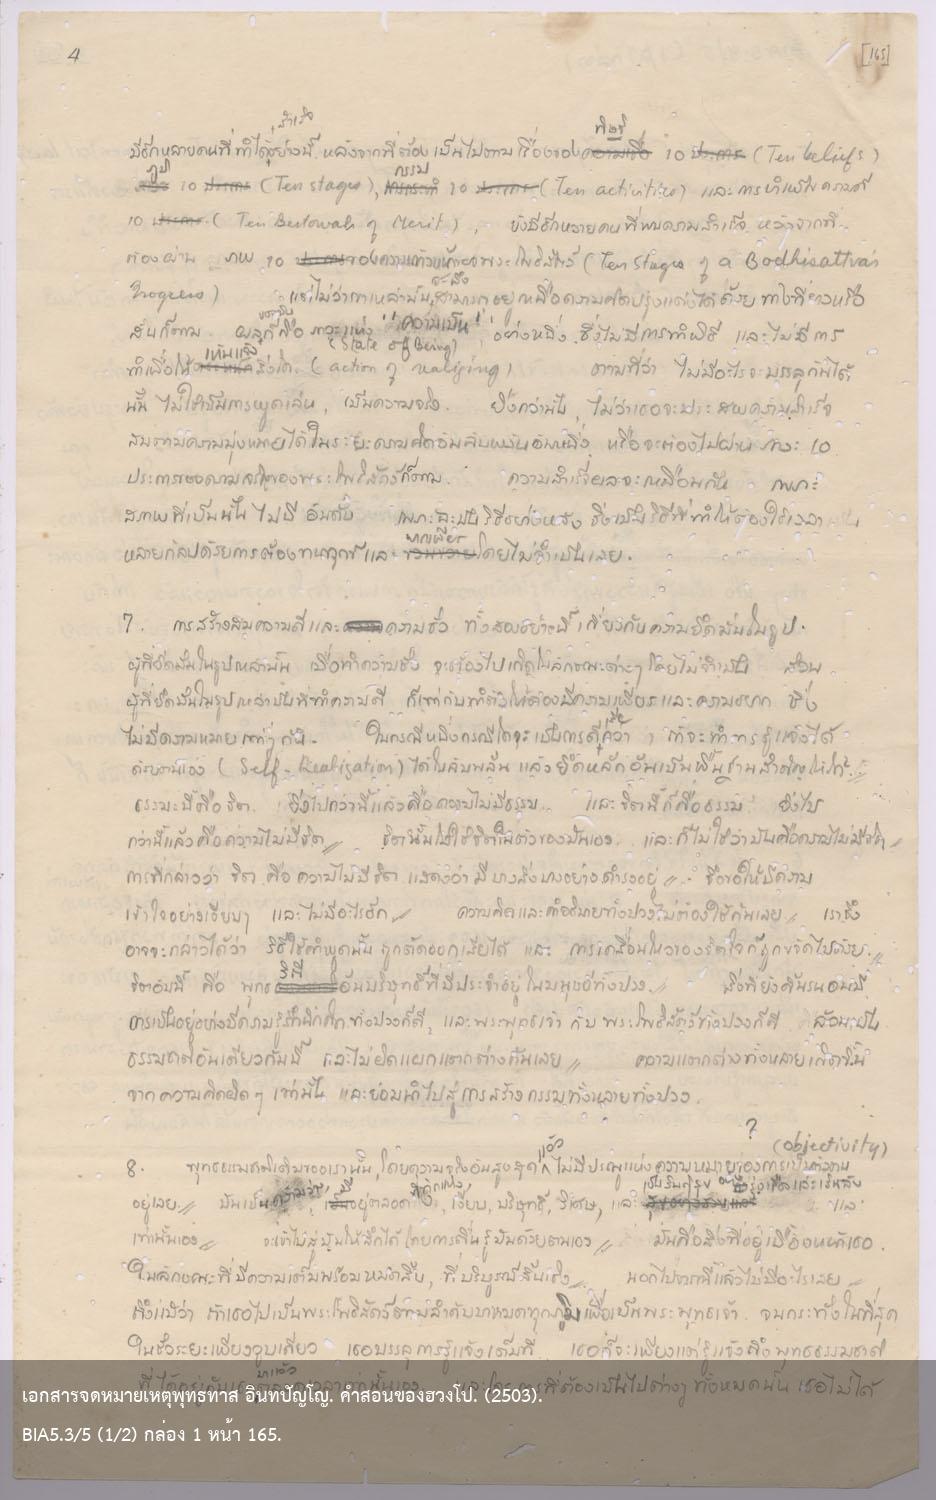 4 [165]
สำเร็จ
มีอีกหลายคนที่ทำได้อย่างนี้ หลังจากที่ต้องเป็นไปตามเรื่องของความเชื่อ 10 ประการ (Ten beliefs)
10 ประการ (Ten stages), 10 ประการ (Ten activities) และการบำเพ็ญความดี
10 ประการ (Ten Bestowals of Merit), ยังมีอีกหลายคนที่พบความสำเร็จ หลังจากที่
ต้องผ่าน ภพ 10 ประการของความก้าวหน้าของพระโพธิสัตว์ (Ten Stages of a Bodhisattva's
Progress) แต่ไม่ว่าเขาเหล่านั้น อยู่เหนือความคิดปรุงแต่งได้ด้วย ทางที่ยาวหรือ
สั้นก็ตาม ผลก็คือ ภาวะแห่ง "ความเป็น" อย่างหนึ่ง ซึ่งไม่มีการทำพิธี และไม่มีการ
(State of Being)
ทำเพื่อให้ สิ่งใด (action of realizing) ตามที่ว่า ไม่มีอะไรจะบรรลุกันได้
นั้น ไม่ใช่เป็นการพูดเล่น, เป็นความจริง. ยิ่งกว่านั้น, ไม่ว่าเธอจะประสพความสำเร็จ
สมตามความมุ่งหมายได้ในระยะความคิดอันฉับพลันอันหนึ่ง หรือจะต้องไปผ่าน ภาวะ 10
ประการของความเจริญของพระโพธิสัตว์ก็ตาม. ความสำเร็จผลจะเหมือนกัน เพราะ
สภาพที่เป็นนั้น ไม่มี อันดับ เพราะฉะนั้น วิธีอย่างหลัง จึงเป็นวิธีที่ทำให้ต้องใช้เวลานาน
หลายกัลปด้วยการต้องทนทุกข์ และ โดยไม่จำเป็นเลย.
7. การสร้างสมความดีและ ความชั่ว ทั้งสองอย่างนี้ เกี่ยวกับความยึดมั่นในรูป.
ผู้ที่ยึดมั่นในรูปเหล่านั้น เมื่อทำความชั่ว จะต้องไปเกิดในลักษณะต่างๆ โดยไม่จำเป็น ส่วน
ผู้ที่ยึดมั่นในรูปเหล่านั้นที่ทำความดี ก็เท่ากับทำตัวให้ต้องมีความเพียรและความยาก ซึ่ง
ไม่มีความหมายเท่าๆกัน. ในกรณีหนึ่งกรณีใดจะเป็นการดีกว่า ที่จะทำการรู้แจ้งได้
ด้วยตนเอง (Self-Realization) ได้ในฉับพลัน แล้วยึดหลักอันเป็นพื้นฐานสำคัญให้ได้.
ธรรมะนี้คือจิต. ยิ่งไปกว่านี้แล้วคือความไม่มีธรรม และ จิตนี้ก็คือธรรม ยิ่งไป
กว่านี้แล้วคือความไม่มีจิต จิตนั้นไม่ใช่จิตในตัวของมันเอง และก็ไม่ใช่ว่ามันคือความไม่มีจิต
การที่กล่าวว่า จิต คือ ความไม่มีจิต แสดงว่ามีบางสิ่งบางอย่างดำรงอยู่ จึงขอให้มีความ
เข้าใจอย่างเงียบๆ และไม่มีอะไรอีก ความคิดและคำอธิบายทั้งปวงไม่ต้องใช้กันเลย เราจึง
อาจจะกล่าวได้ว่า วิธีใช้คำพูดนั้น ถูกตัดออกเสียได้ และ การเคลื่อนไหวของจิตใจก็ถูกขจัดไปด้วย.
จิตอันนี้ คือ พุทธ อันบริสุทธิ์ที่มีประจำอยู่ในมนุษย์ทั้งปวง.
การเป็นอยู่อย่างมีความรู้สึกนึกคิดทั้งปวงก็ดี, และพระพุทธเจ้า กับ พระโพธิสัตว์ทั้งปวงก็ดี ล้วนเป็น
ธรรมชาติอันเดียวกันนี้ และไม่ผิดแผกแตกต่างกันเลย ความแตกต่างทั้งหลายเกิดขึ้น
จากความคิดผิดๆ เท่านั้น และย่อมนำไปสู่การสร้างกรรมทั้งหลายทั้งปวง.
? (objectivity)
8. พุทธธรรมชาติเดิมของเรานั้น, โดยความจริงอันสูงสุดแล้ว ไม่มีประณูแห่งความหมายของการเป็นตัวตน
อยู่เลย มันเป็น อยู่ตลอด, เงียบ, บริสุทธิ์, วิเศษ, และ แล
เท่านั้นเอง จงเข้าไปสู่มันให้ลึกได้ โดยการตื่น รู้มันด้วยตนเอง มันคือสิ่งที่อยู่เบื้องหน้าเธอ.
ในลักษณะที่มีความเต็มพร้อมหมดสิ้น, ที่บริบูรณ์สิ้นเชิง นอกไปจากนี้แล้วไม่มีอะไรเลย
ถึงแม้ว่า ถ้าเธอไปเป็นพระโพธิสัตว์ตามลำดับมาหมดทุกภูมิเพื่อเป็นพระพุทธเจ้า จนกระทั่งในที่สุด
ในชั่วระยะเพียงวูบเดียว เธอบรรลุการรู้แจ้งเต็มที่ เธอก็จะเพียงแต่รู้แจ้งถึงพุทธธรรมชาติ
และโดยการที่ต้องเป็นไปต่างๆ ทั้งหมดนั้น เธอไม่ได้
เอกสารจดหมายเหตุพุทธทาส อินทปัญโญ. คำสอนของฮวงโป. (2503).
BIA5.3/5 (1/2) กล่อง 1 หน้า 165.